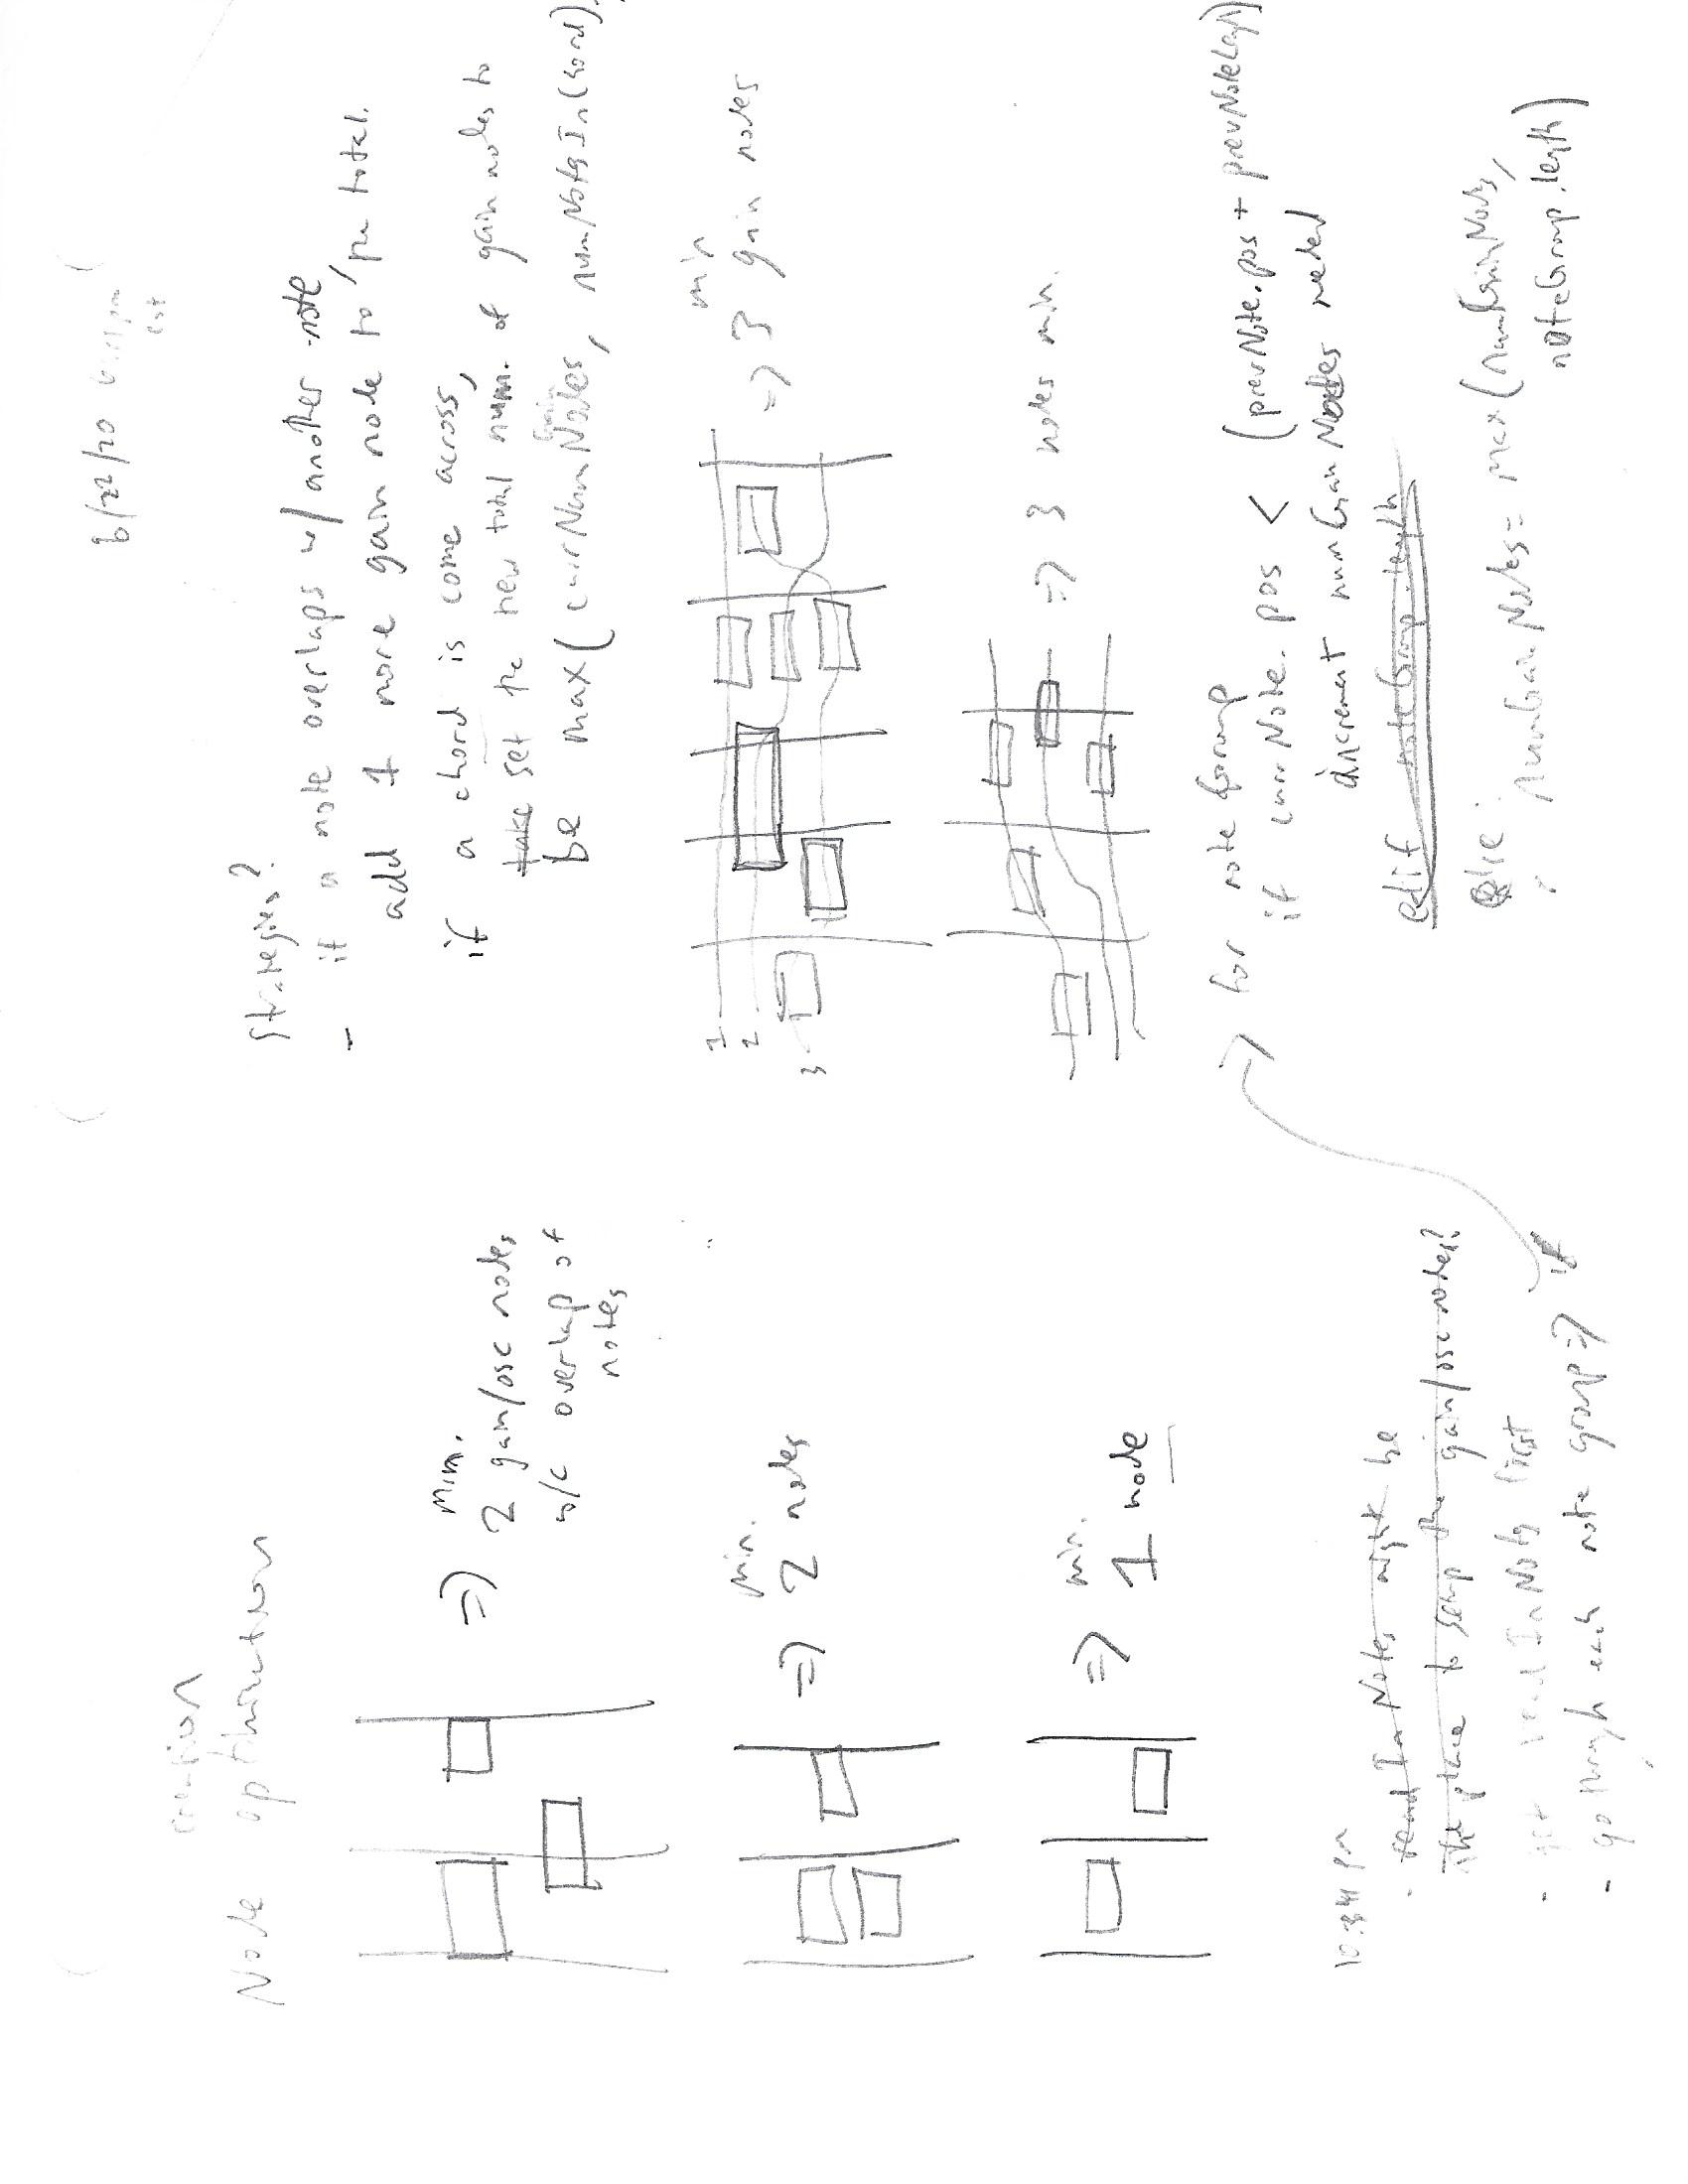 6/22/20
est
creation
Node optimization
min.
2 gain/osc nodes
b/c overlap of
notes
min.
2 nodes
min.
1 node
10:34 pm
- readInNotes might be
the place to setup the gain/osc nodes?
- get readInNotes first
- go through each note group => if
Strategies?
- if a note overlaps w/ another note,
add 1 more gain node to the total.
if a chord is come across,
take set the new total num. of gain nodes to
be max(currNumGainNodes, numNotesInChord)
1
2
3
=> min
3 gain nodes
=> 3 nodes min.
for note Group
if currNote.pos < (prevNote.pos + prevNoteLength)
increment numGainNodes needed
elif noteGroup.length
else:
numGainNodes = max(numGainNodes,
noteGroup.length)